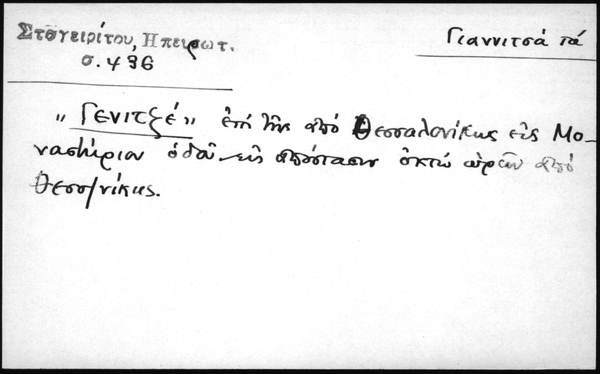 Σταγειρίτου, Ηπειρωτ.
σ. 436
Γιαννιτσά τά
"Γενιτζέ" ἐπί τῆς ἀπό Θεσσαλονίκης εἰς Μο-
ναστήριον ὁδοῦ εἰς ἀπόστασιν ὀκτώ ὡρῶν ἀπό
Θεσσ/νίκης.